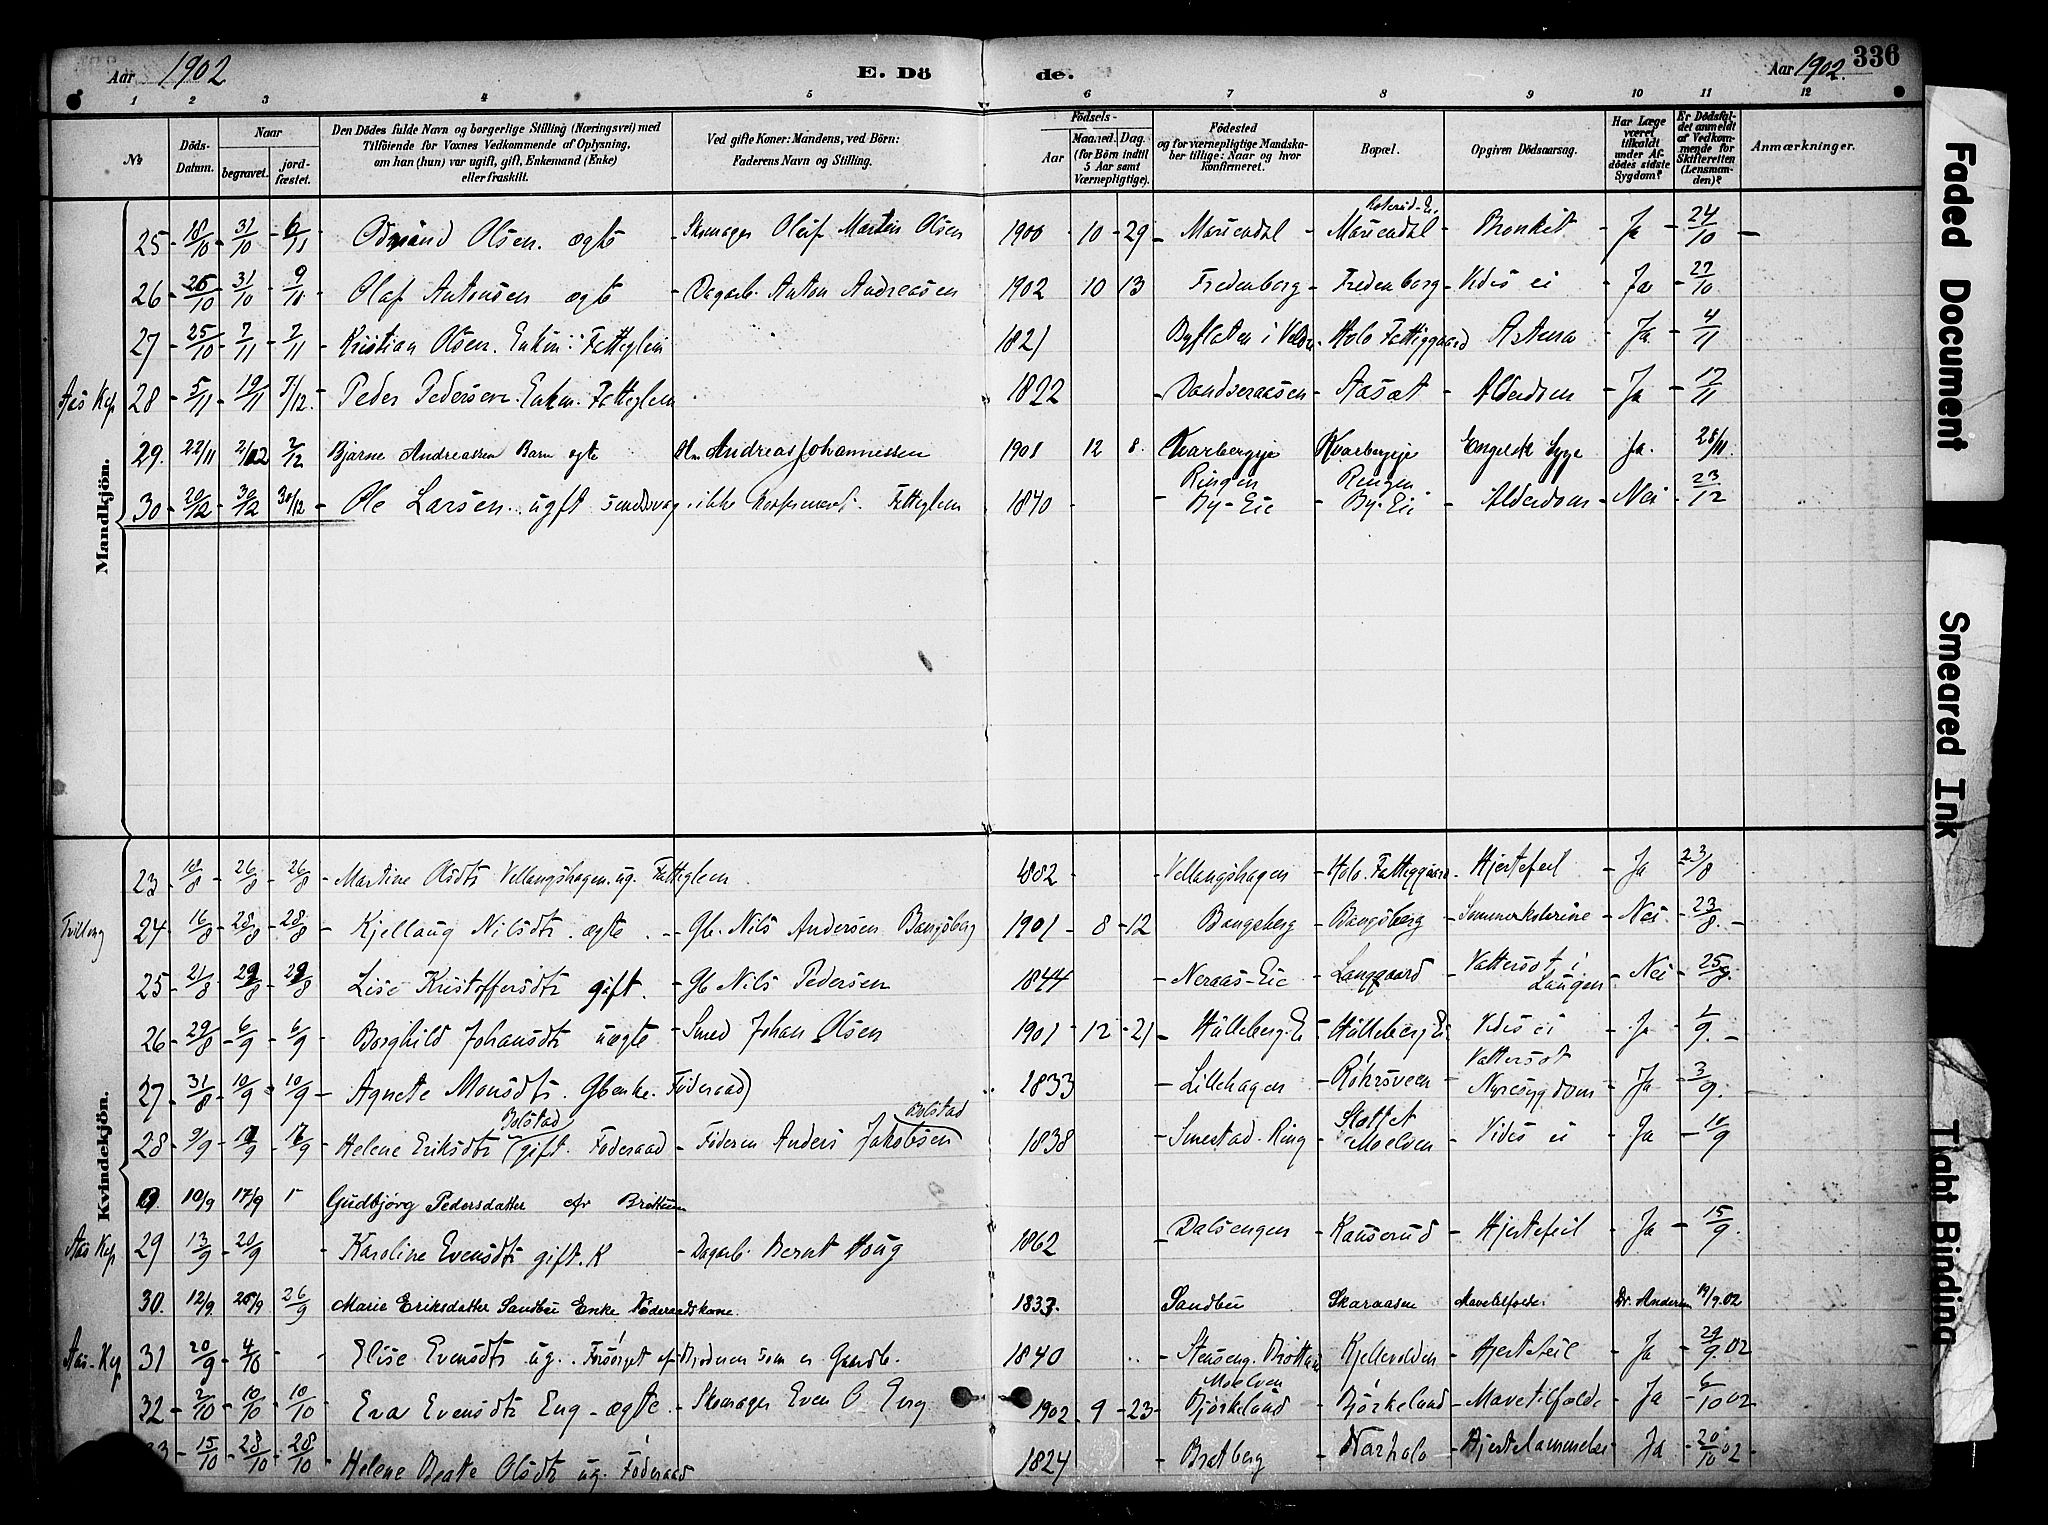 Aar 1902 E. Dö de. Aar 1902. 336
1 2 3 4 5 6 7 8 9 10 11 12
No Döds-Datum. Naar begravet. jord-fæstet. Den Dödes fulde Navn og borgerlige Stilling (Næringsvei) med Tilföiende for Voxnes Vedkommende af Oplysning, om han (hun) var ugift, gift, Enkemand (Enke) eller fraskilt. Ved gifte Koner: Mandens, ved Börn: Faderens Navn og Stilling. Födsels- Aar Maaned. Dag. (for Börn indtil 5 Aar samt Værnepligtige). Födested og for værnepligtige Mandskaber tillige: Naar og hvor konfirmeret. Bopæl. Opgiven Dödsaarsag. Har Læge været tilkaldt under Afdödes sidste Sygdom? Er Dödsfaldet anmeldt af Vedkommende for Skifteretten (Lensmanden)? Anmærkninger.
Mandkjön.
25 18/10 31/10 6/11 Olsen. ægte Skomager Oluf Martin Olsen 1900 10 29 Mariendal Mariendal Bronkit Ja 24/10
26 10 31/10 9/11 Olaf Antonsen ægte Dagarb. Anton Andreasen 1902 10 13 Fredenborg Fredenborg Vides ei Ja 27/10
27 25/10 7/11 7/11 Kristian Olsen. Enkm. Fattiglem 1821 Byflaten i Veldre Holo Fattiggaard Astma Ja 4/11
Aas Kap 28 5/11 19/11 7/12. Peder Pedersen. Enkm. Fattiglem 1822 Aasæt Alderdom Ja 17/11
29. 22/11 2/12 2/12 Bjarne Andreassen Barn ægte Andreas Johannessen 1901 12 8. Kvarbergeje Ringen Kvarbergeje Ringen Engelsk Syge Ja. 28/11
30 20/12 30/12 30/12 Ole Larsen. ugift sindssvag ikke konfirmeret. Fattiglem 1840 By-Eie By-Eie Alderdom Nei 23/12
Kvindekjön.
23 18/8 26/8 26/8 Martine Olsdtr Vellangshagen. ug. Fattiglem. 1882 Vellangshagen Holo. Fattiggaard Hjertefeil Ja 23/8
Tvilling 24 16/8 28/8 28/8 Kjellaug Nilsdtr. ægte. Gb. Nils Andersen Bangsberg 1901 8 12 Bangsberg Bangsberg Sommerkolerine Nei 23/8.
25 21/8 29/8 29/8 Lise Kristoffersdtr gift. Gb Nils Pedersen 1844 Neraas-Eie Langgaard Vattersot i Lungen Nei 25/8.
26 29/8 6/9 6/9 Borghild Johansdtr uægte Smed Johan Olsen 1901 12 21 Hulleberg-Ei Hulleberg Ei. Vides ei Ja 1/9.
27 31/8 10/9 10/9 Agnete Monsdtr. Gbenke. Föderaad 1833 Lillehagen Röhrsveen Vattersot Nyresygdom Ja 3/9.
28 9/9 17/9 17/9 Helene Eriksdtr Bolstad gift. Föderaad Föderm Anders Jakobsen Bolstad 1838 Smestad. Ring Slottet Moelven Vides ei Ja 10/9
10/9 17/9 Gudbjörg Pedersdatter Brøttum
Aas Kap 29 13/9 20/9 Karoline Evensdtr gift. K Dagarb. Bernt Houg 1862 Dalsengen Kauserud Hjertefeil Ja 15/9.
30. 12/9. 26/9 26/9 Marie Eriksdatter Sandbu Enke Föderaadskone. 1833. Sandbu Skaraasen Dr. Andersen 14/9.02
Aas-Kap 31 20/9 4/10 Elise Evensdtr ug. Forsörget af Broderen som er Gaardb. 1840 Stenseng. Brøttum Kjellevolden Hjertefeil Ja 29/9.02
32 2/10 10/10 10/10 Eva Evensdtr Eng ægte Skomager Even O. Eng 1902 9 23 Moelven Björkelund Björkelund Mavetilfælde Ja 6/10 02
15/10 28/10 28/10 Helene Beate Olsdtr ug. Föderaad 1824 Bratberg Narholo Hjertelammelse Ja 20/10 02
Faded Document
Smeared Ink
Tight Binding